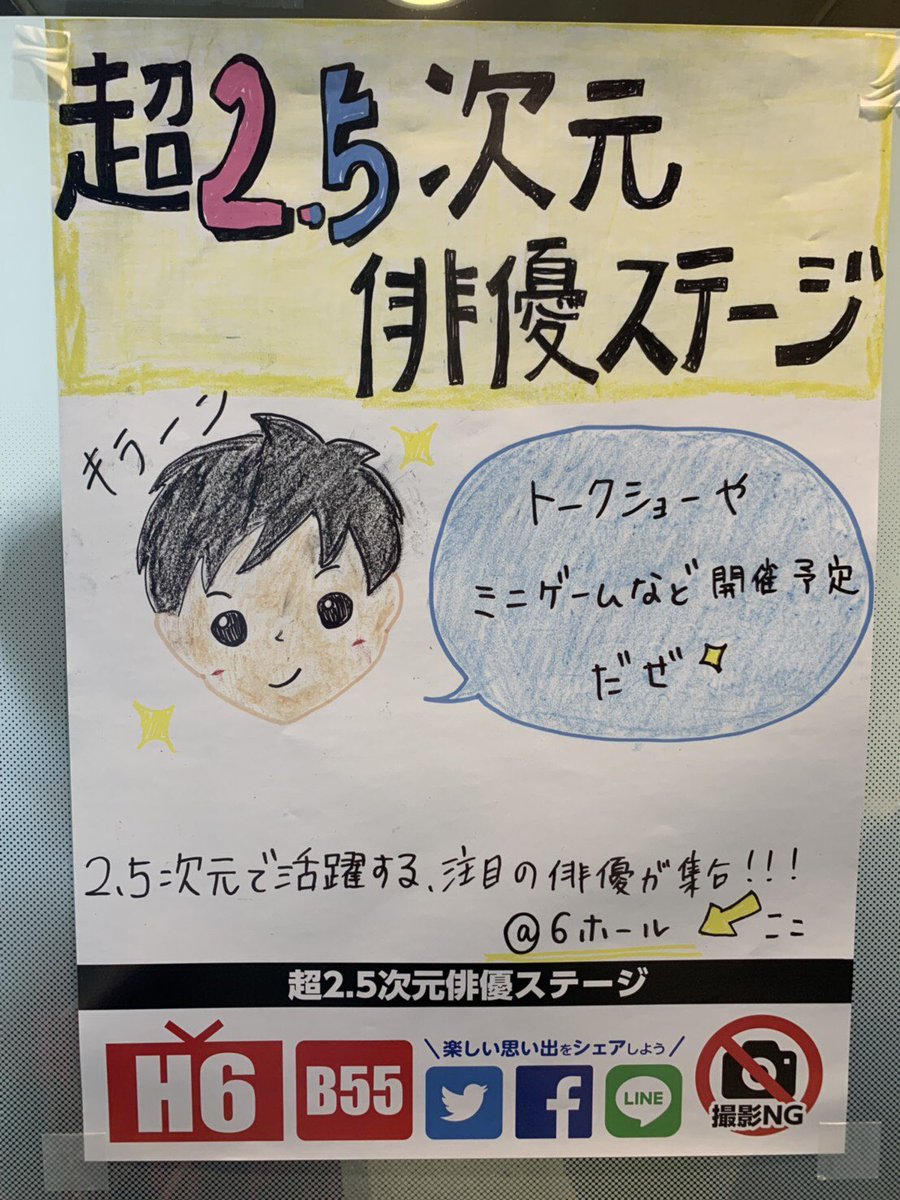 超2.5次元
俳優ステージ
キラーン
トークショーや
ミニゲームなど開催予定
だぜ
2.5次元で活躍する、注目の俳優が集合!!!
@6ホール ここ
超2.5次元俳優ステージ
H6
B55
\楽しい思い出をシェアしよう/
LINE
撮影NG